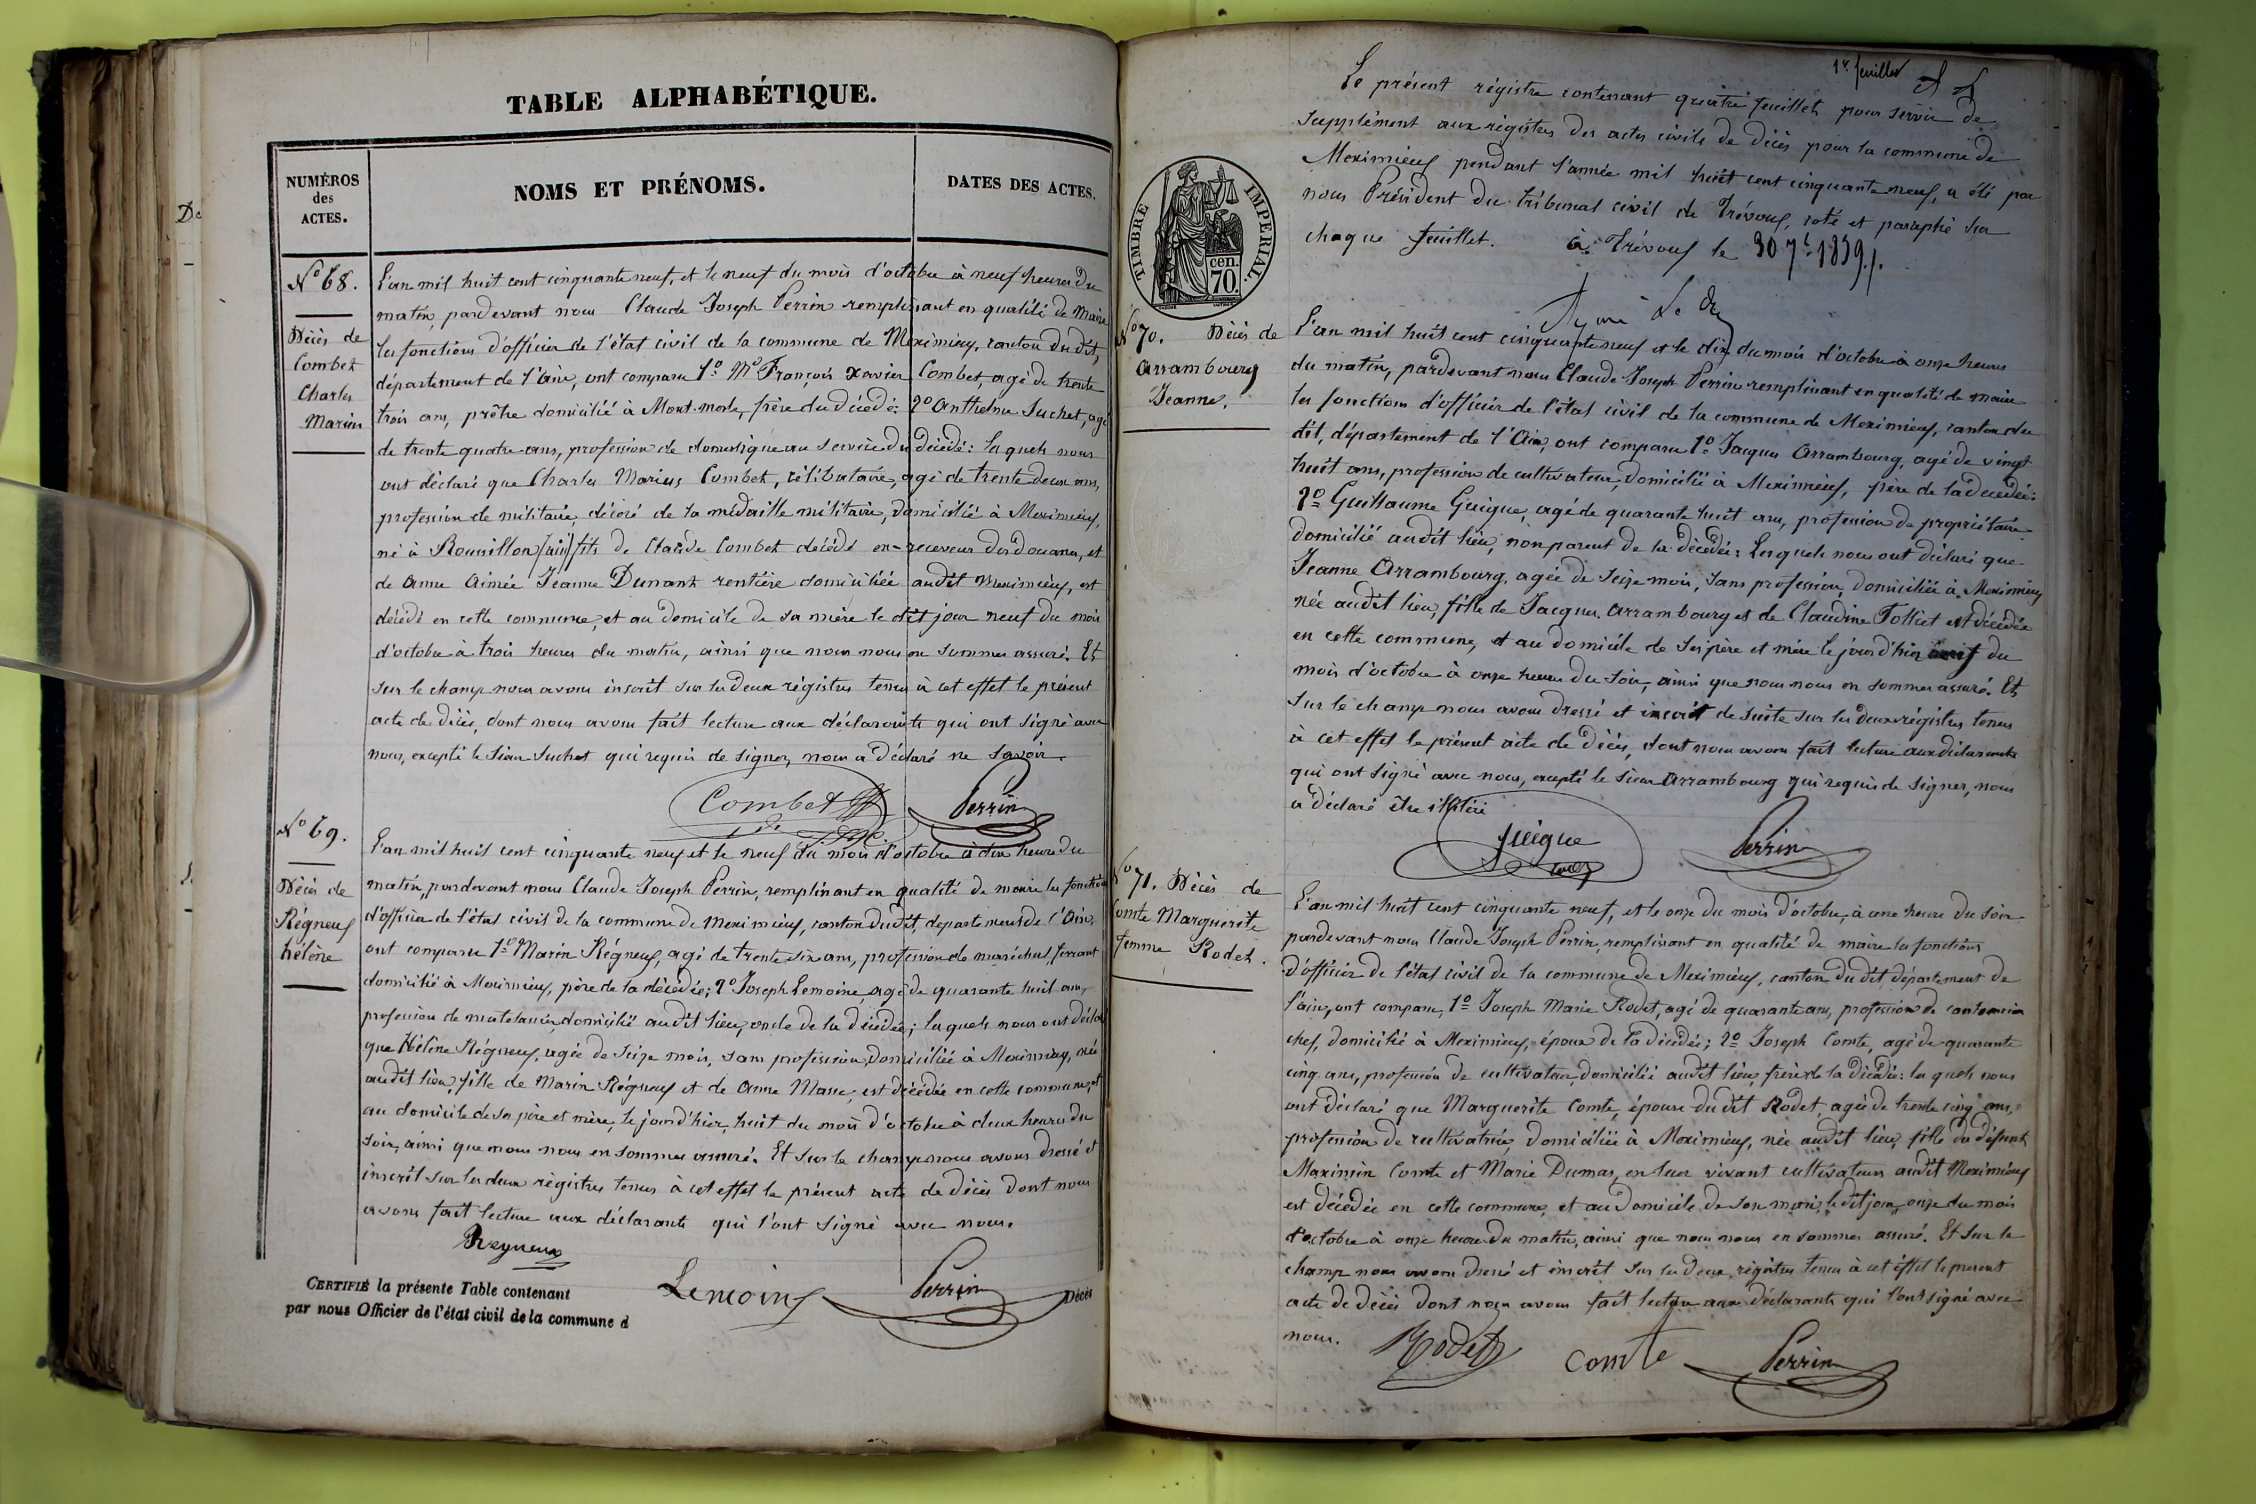 TABLE ALPHABÉTIQUE.
NUMÉROS des ACTES.
NOMS ET PRÉNOMS.
DATES DES ACTES.
De
N° 68.
Décès de
Combet
Charles
Marius
L'an mil huit cent cinquante neuf, et le neuf du mois d'octobre à neuf heures du
matin, pardevant nous Claude Joseph Perrin remplissant en qualité de Maire
les fonctions d'officier de l'état civil de la commune de Meximieux, canton du dit,
département de l'ain, ont comparu 1° Mr François Xavier Combet, agé de trente
trois ans, prêtre domicilié à Mont-merle, frère du décédé: 2° Anthelme Suchet, agé
de trente quatre ans, profession de domestique au service du décédé: Lesquels nous
ont déclaré que Charles Marius Combet, célibataire, agé de trente deux ans,
profession de militaire, décoré de la médaille militaire, domicilié à Meximieux,
né à Roussillon (ain) fils de Claude Combet décédé en receveur des douanes, et
de anne Aimée Jeanne Dunant rentière domiciliée audit Meximieux, est
décédé en cette commune, et au domicile de sa mère le dit jour neuf du mois
d'octobre à trois heures du matin, ainsi que nous nous en sommes assuré. Et
sur le champ nous avons inscrit sur les deux régistres tenus à cet effet le présent
acte de décès, dont nous avons fait lecture aux déclarants qui ont signé avec
nous, excepté le sieur Suchet qui requis de signer, nous a déclaré ne savoir.
Combet
Perrin
N° 69.
Décès de
Régneux
hélène
L'an mil huit cent cinquante neuf et le neuf du mois d'octobre à dix heures du
matin, pardevant nous Claude Joseph Perrin, remplissant en qualité de maire les fonctions
d'officier de l'état civil de la commune de Meximieux, canton dudit, département de l'Ain,
ont comparu 1° Marin Régneux, agé de trente six ans, profession de maréchal ferrant
domicilié à Meximieux, père de la décédée; 2° Joseph Lemoine, agé de quarante huit ans,
profession de matelassier, domicilié audit lieu, oncle de la décédée; lesquels nous ont déclaré
que Hélène Régneux, agée de seize mois, sans profession, domiciliée à Meximieux, née
audit lieu, fille de Marin Régneux et de Anne Masse, est décédée en cette commune, et
au domicile de ses père et mère, le jour d'hier, huit du mois d'octobre à deux heures du
soir, ainsi que nous nous en sommes assuré. Et sur le champ nous avons dressé et
inscrit sur les deux régistres tenus à cet effet le présent acte de décès dont nous
avons fait lecture aux déclarants qui l'ont signé avec nous.
Regneux
Lemoine
Perrin
CERTIFIÉ la présente Table contenant
Décès
par nous Officier de l'état civil de la commune d
1er feuillet
Le présent régistre contenant quatre feuillets pour servir de
supplément aux régistres des actes civils de décès pour la commune de
Meximieux pendant l'année mil huit cent cinquante neuf, a été par
nous Président du tribunal civil de Trévoux, coté et paraphé sur
chaque feuillet. à Trévoux le 30 7bre 1859.
TIMBRE IMPERIAL.
cen.
70.
N° 70. Décès de
Arrambourg
Jeanne.
L'an mil huit cent cinquante neuf et le dix du mois d'octobre à onze heures
du matin, pardevant nous Claude Joseph Perrin remplissant en qualité de maire
les fonctions d'officier de l'état civil de la commune de Meximieux, canton du
dit, département de l'Ain, ont comparu 1° Jacques Arrambourg, agé de vingt
huit ans, profession de cultivateur, domicilié à Meximieux, père de la décédée:
2° Guillaume Guigue, agé de quarante huit ans, profession de propriétaire
domicilié audit lieu, non parent de la décédée: Lesquels nous ont déclaré que
Jeanne Arrambourg, agée de seize mois, sans profession, domiciliée à Meximieux
née audit lieu, fille de Jacques Arrambourg et de Claudine Folliet est décédée
en cette commune, et au domicile de ses père et mère le jour d'hier neuf du
mois d'octobre à onze heures du soir, ainsi que nous nous en sommes assuré. Et
sur le champ nous avons dressé et inscrit de suite sur les deux régistres tenus
à cet effet le présent acte de décès, dont nous avons fait lecture aux déclarants
qui ont signé avec nous, excepté le sieur Arrambourg qui requis de signer, nous
a déclaré être illitéré
Guigue
Perrin
N° 71. Décès de
Comte Marguerite
femme Rodet.
L'an mil huit cent cinquante neuf, et le onze du mois d'octobre, à une heure du soir
pardevant nous Claude Joseph Perrin, remplissant en qualité de maire les fonctions
d'officier de l'état civil de la commune de Meximieux, canton du dit, département de
l'ain, ont comparu, 1° Joseph Marie Rodet, agé de quarante ans, profession de cantonnier
chef, domicilié à Meximieux, époux de la décédée; 2° Joseph Comte, agé de quarante
cinq ans, profession de cultivateur, domicilié audit lieu, frère de la décédée: lesquels nous
ont déclaré que Marguerite Comte, épouse du dit Rodet, agée de trente cinq ans,
profession de cultivatrice, domiciliée à Meximieux, née audit lieu, fille des défunts
Maximin Comte et Marie Dumas, en leur vivant cultivateurs audit Meximieux
est décédée en cette commune, et au domicile de son mari, le dit jour, onze du mois
d'octobre à onze heures du matin, ainsi que nous nous en sommes assuré. Et sur le
champ nous avons dressé et inscrit sur les deux régistres tenus à cet effet le présent
acte de décès dont nous avons fait lecture aux déclarants qui l'ont signé avec
nous.
Rodet
Comte
Perrin